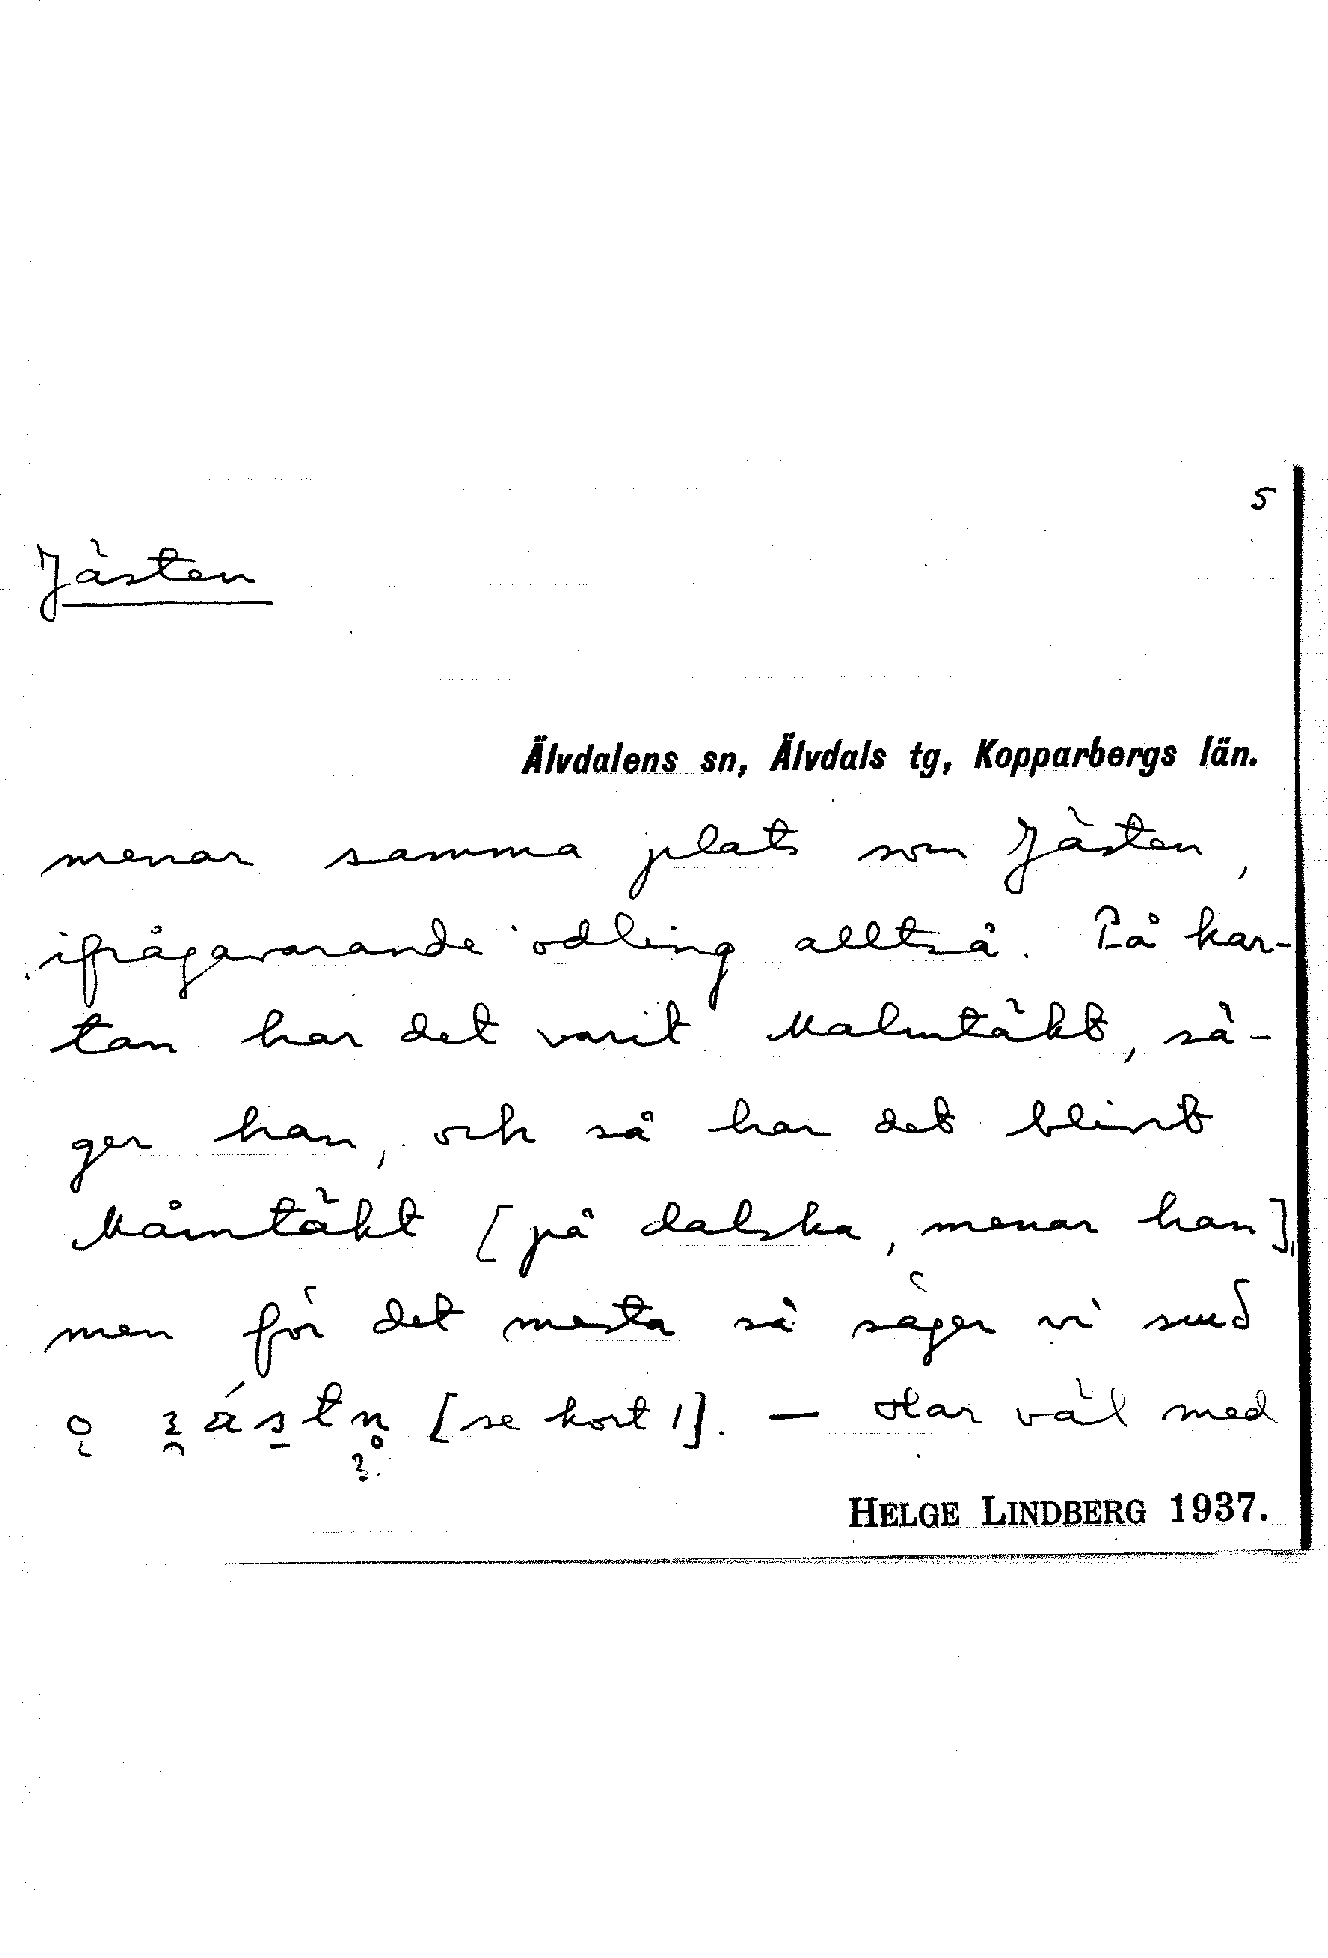 5
Jästen
Älvdalens sn, Älvdals tg, Kopparbergs län.
menar samma plats som Jästen,
ifrågavarande odling alltså. På kar-
tan har det varit Malmtäkt, sä-
ger han, och så har det blivit
Måmtäkt [på dalska, menar han],
men för det mesta så säger vi
[se kort 1]. — Har väl med
HELGE LINDBERG 1937.